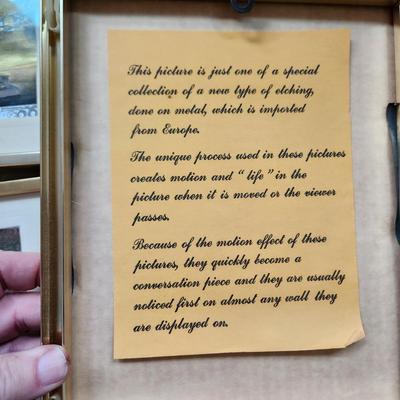 This picture is just one of a special
collection of a new type of etching,
done on metal, which is imported
from Europe.
The unique process used in these pictures
creates motion and “ life ” in the
picture when it is moved or the viewer
passes.
Because of the motion effect of these
pictures, they quickly become a
conversation piece and they are usually
noticed first on almost any wall they
are displayed on.